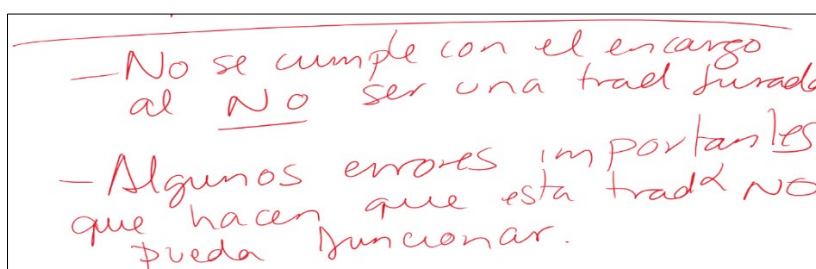 — No se cumple con el encargo
al NO ser una trad jurada
— Algunos errores importantes
que hacen que esta tradᵒ NO
pueda funcionar.